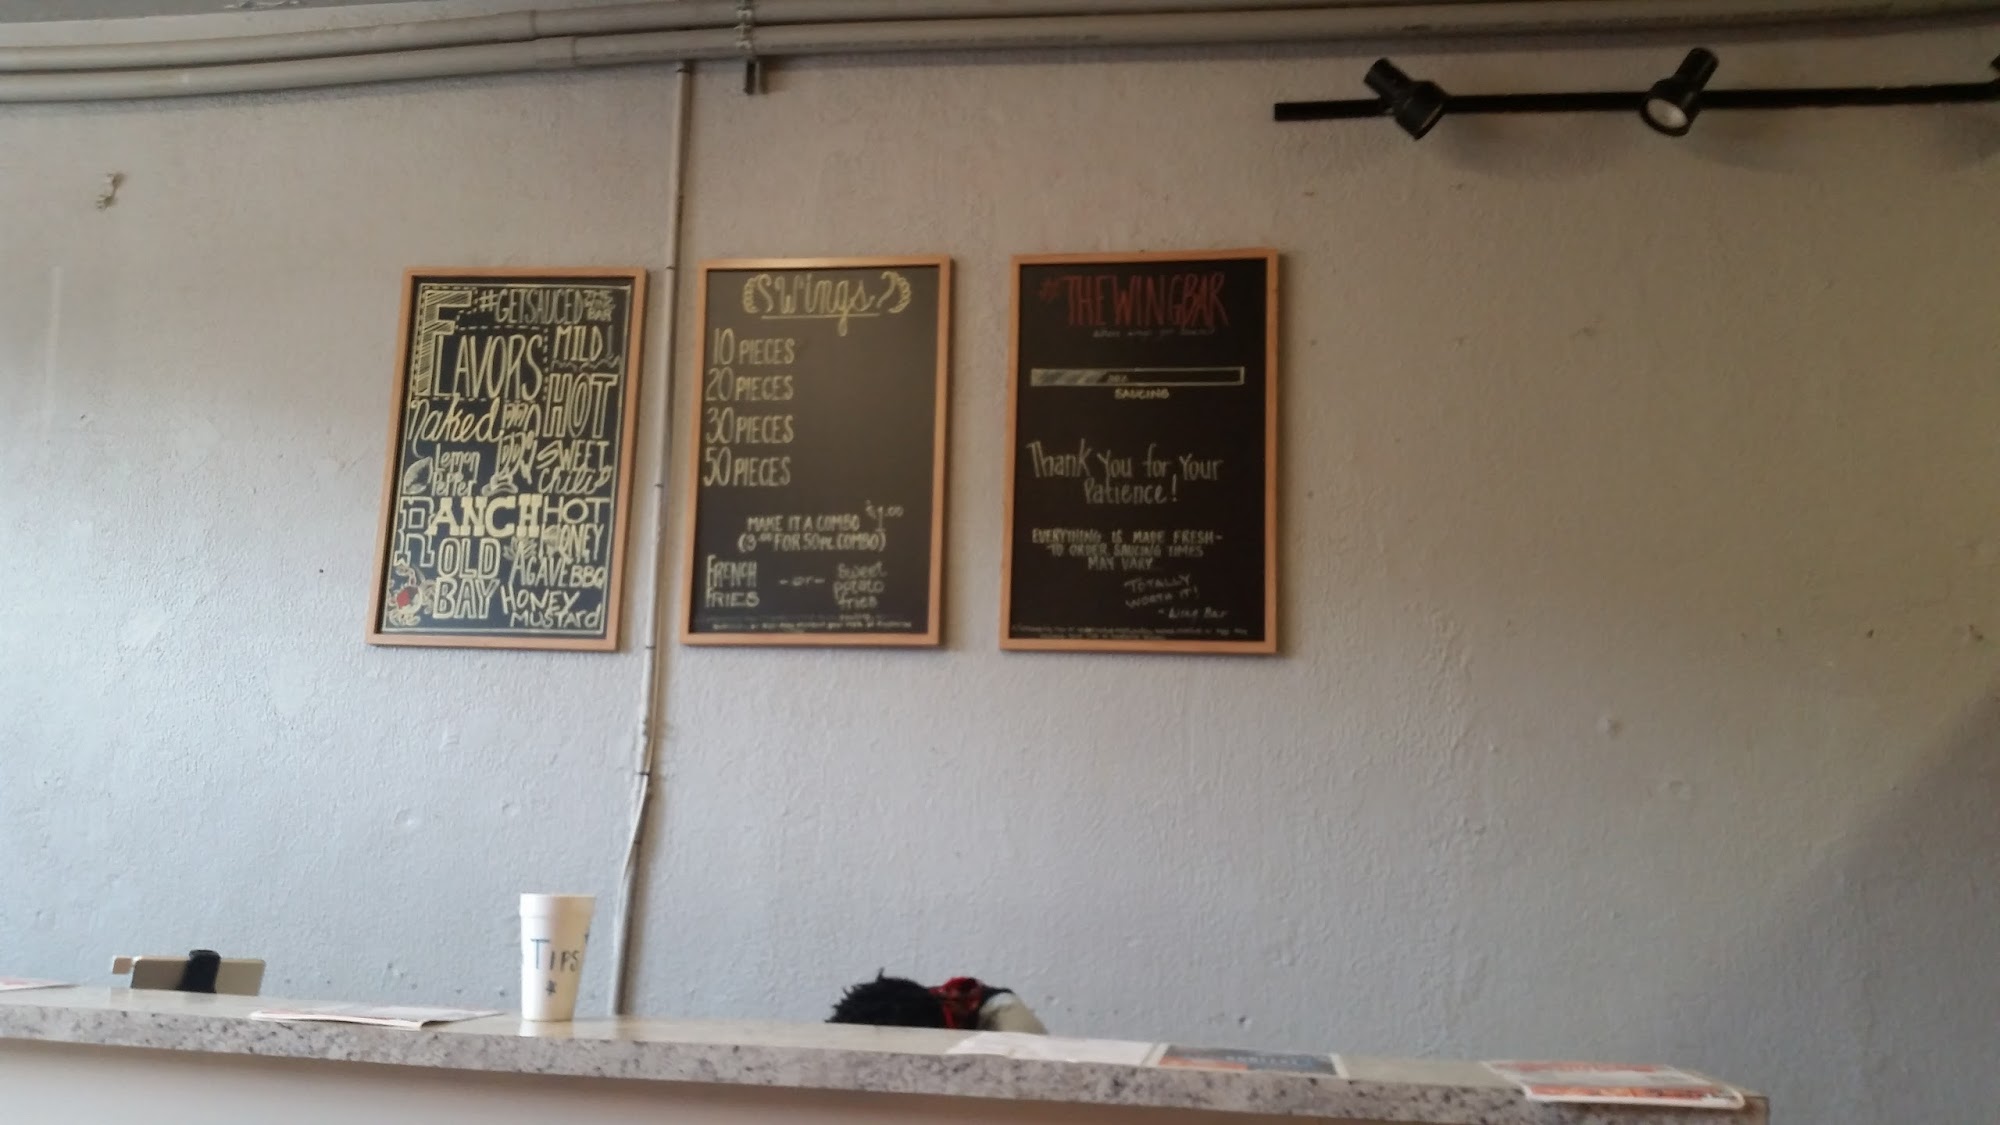 #GETSAUCED THE WING BAR
FLAVORS
MILD
HOT
Naked
BBQ
Lemon
Pepper
SWEET
Chili
RANCH
HOT
HONEY
OLD
BAY
AGAVE BBQ
HONEY
MUSTARd
Wings
10 PIECES
20 PIECES
30 PIECES
50 PIECES
MAKE IT A COMBO $1.00
(3.00 FOR 50pc. COMBO)
FRENCH
FRIES
-or-
Sweet
potato
fries
#THEWINGBAR
SAUCING
Thank You for Your
Patience!
EVERYTHING IS MADE FRESH-
TO ORDER. SAUCING TIMES
MAY VARY...
TOTALLY
WORTH IT!
-Wing Bar
TIPS